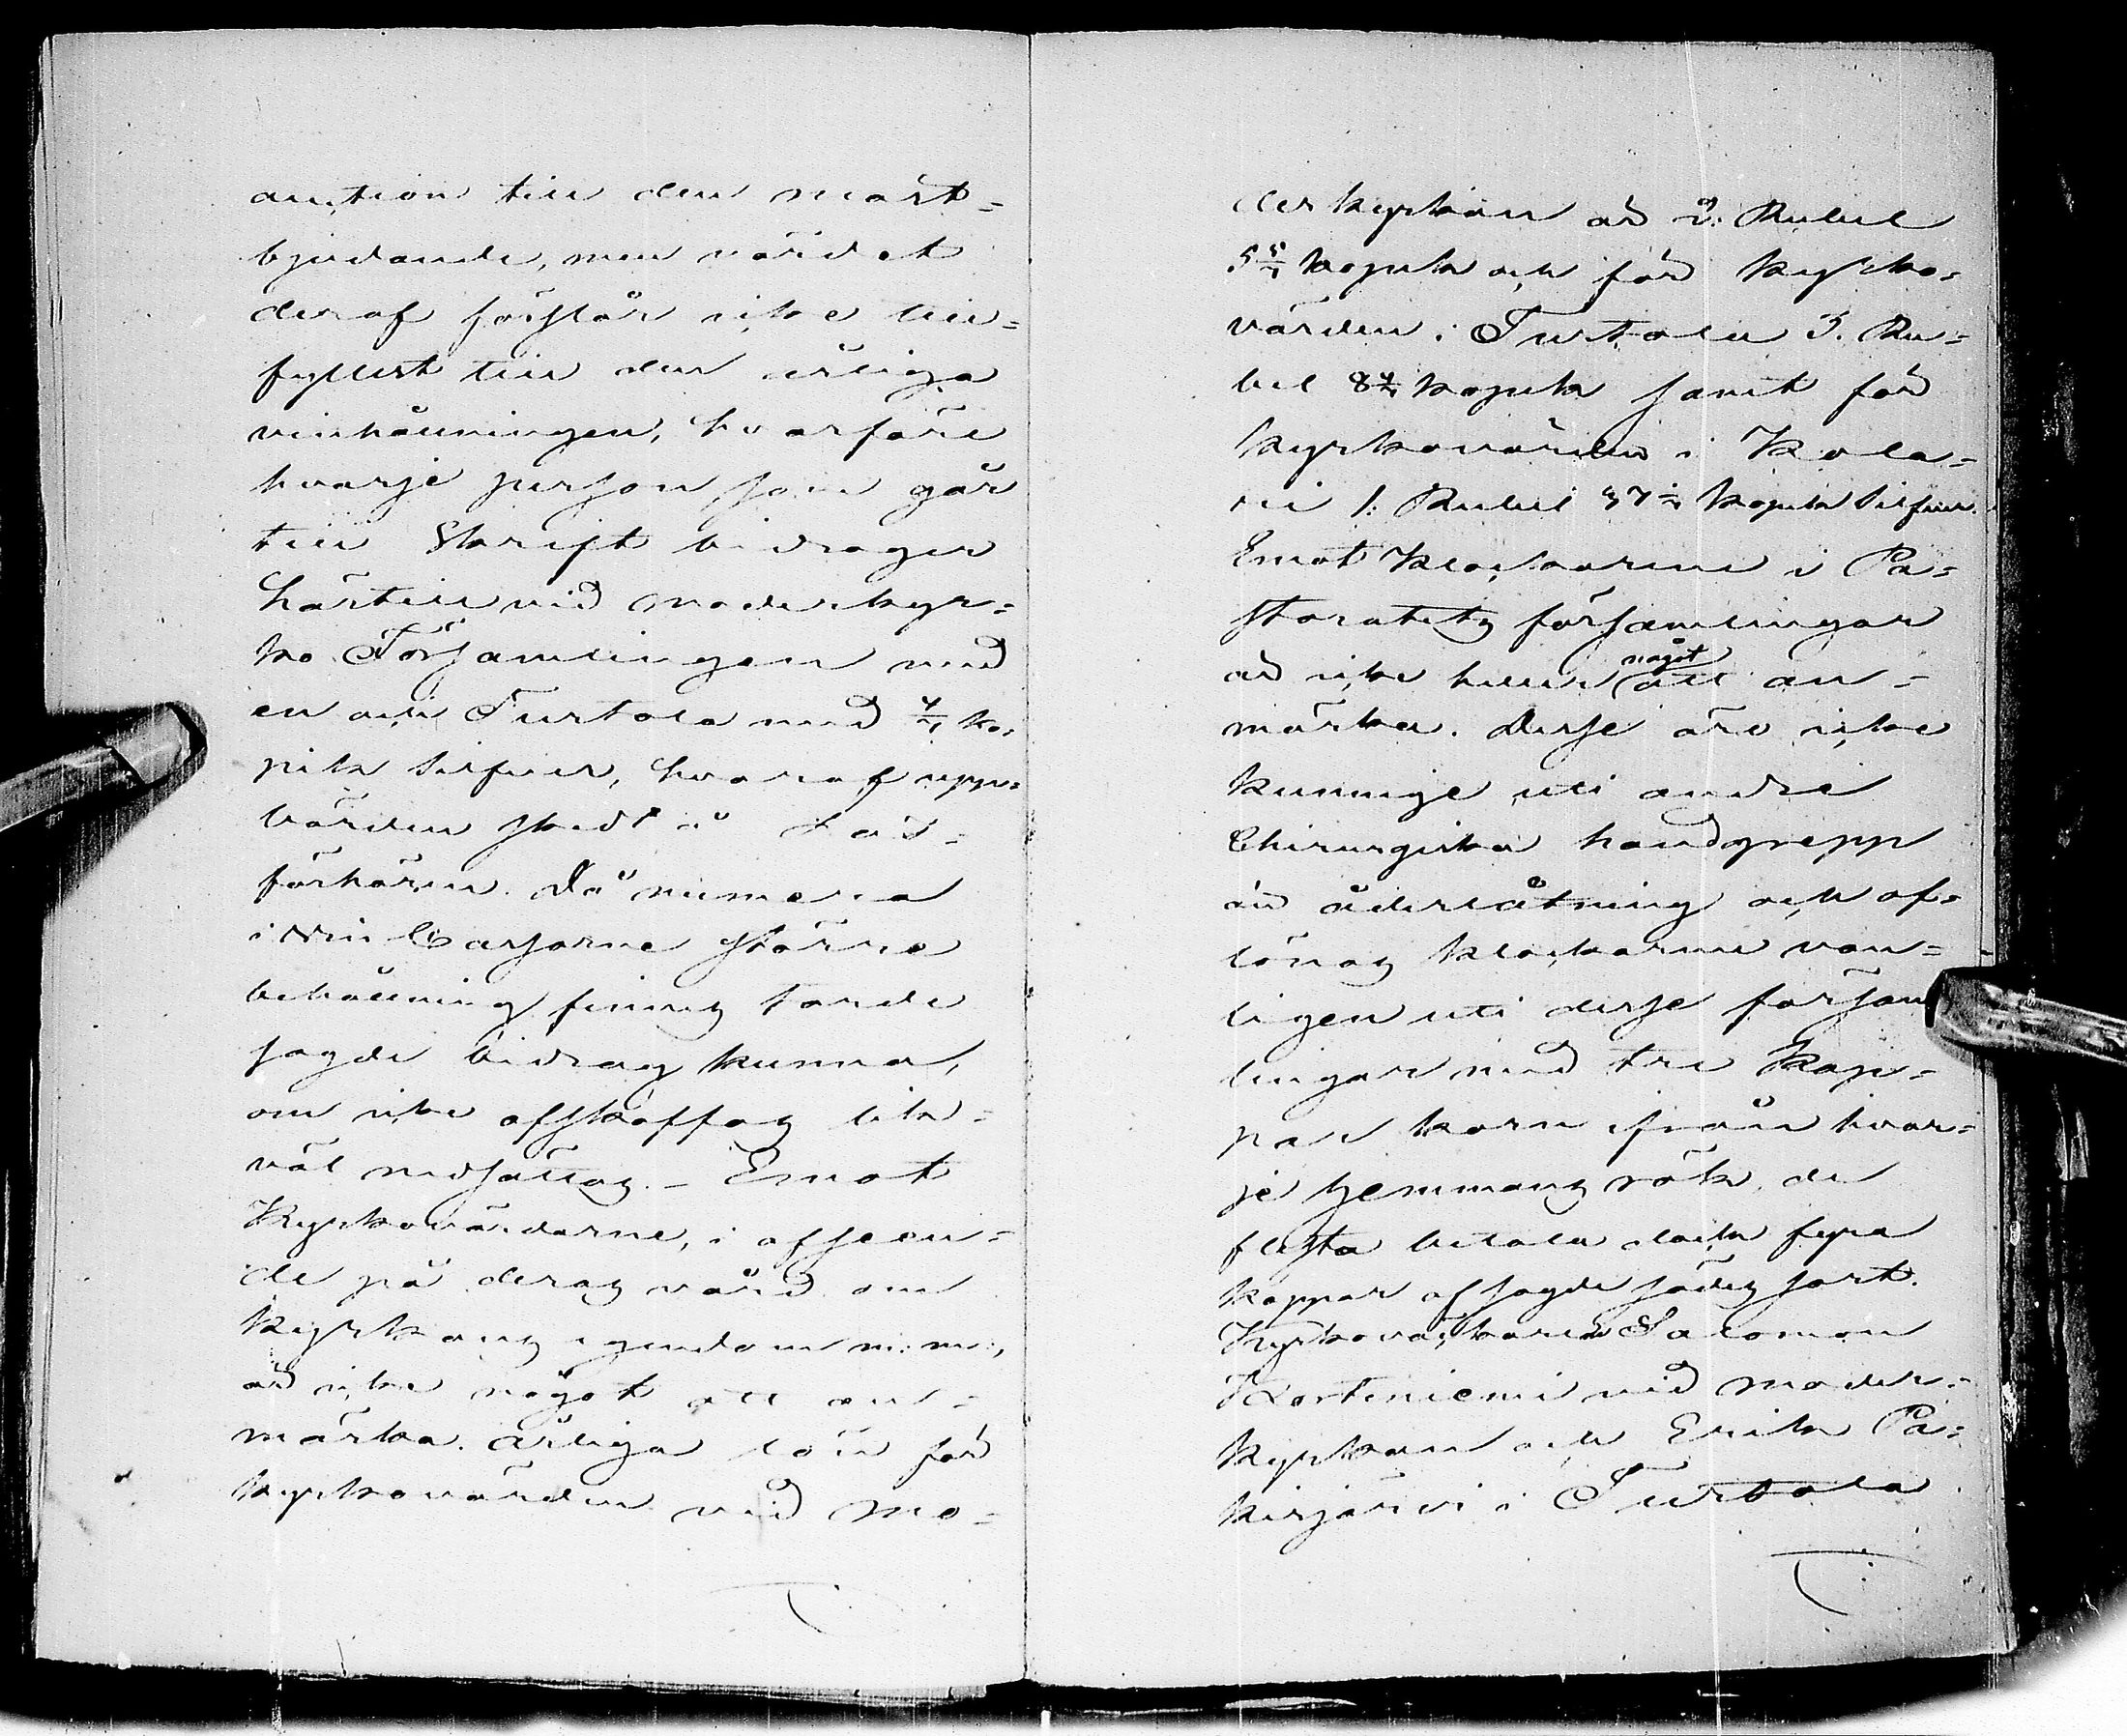 auction till den mäst=
bjudande, men värdet
deraf förslår icke till=
fyllest till den årliga
vinhållningen, hvarföre
hvarje person som går
till Skrift bidrager
härtill vid moderkyr=
ko Församlingen med
en och Turtola med 4/7 ko=
pek Silfver, hvaraf upp=
börden skedt å Läs=
förhören. Då numera
i Vin Cassorne större
behållning finnes torde
sagde bidrag kunna,
om icke afskaffas lik=
väl nedsättas. – Emot
Kyrkovärdarne, i afseen=
de på deras vård om
kyrkans egendom m: m:,
är icke något att an=
märka. Årliga lön för
kyrkovärden vid mo=
derkyrkan är 2. Rubel
5 5/7 kopek och för kyrko=
värden i Turtola 3. Ru=
bel 8 4/7 kopek samt för
kyrkovärden i Kola=
ri 1. Rubel kopek Silfver.
Emot Klockarene i Pa=
storatets församlingar
är icke heller något att an=
märka. Desse äro icke
kunnige uti andre
Chirurgiska handgrepp
än åderlåtning och af=
lönas klockarne van=
ligen uti desse försam
lingar med tre Kap=
par korn ifrån hvar=
je hemmans rök, de
flesta betala dock fyra
kappar af sagde sädes sort.
Kyrkoväktaren Salomon
Korteniemi vid moder=
kyrkan och Erik Pa=
kisjärvi i Turtola